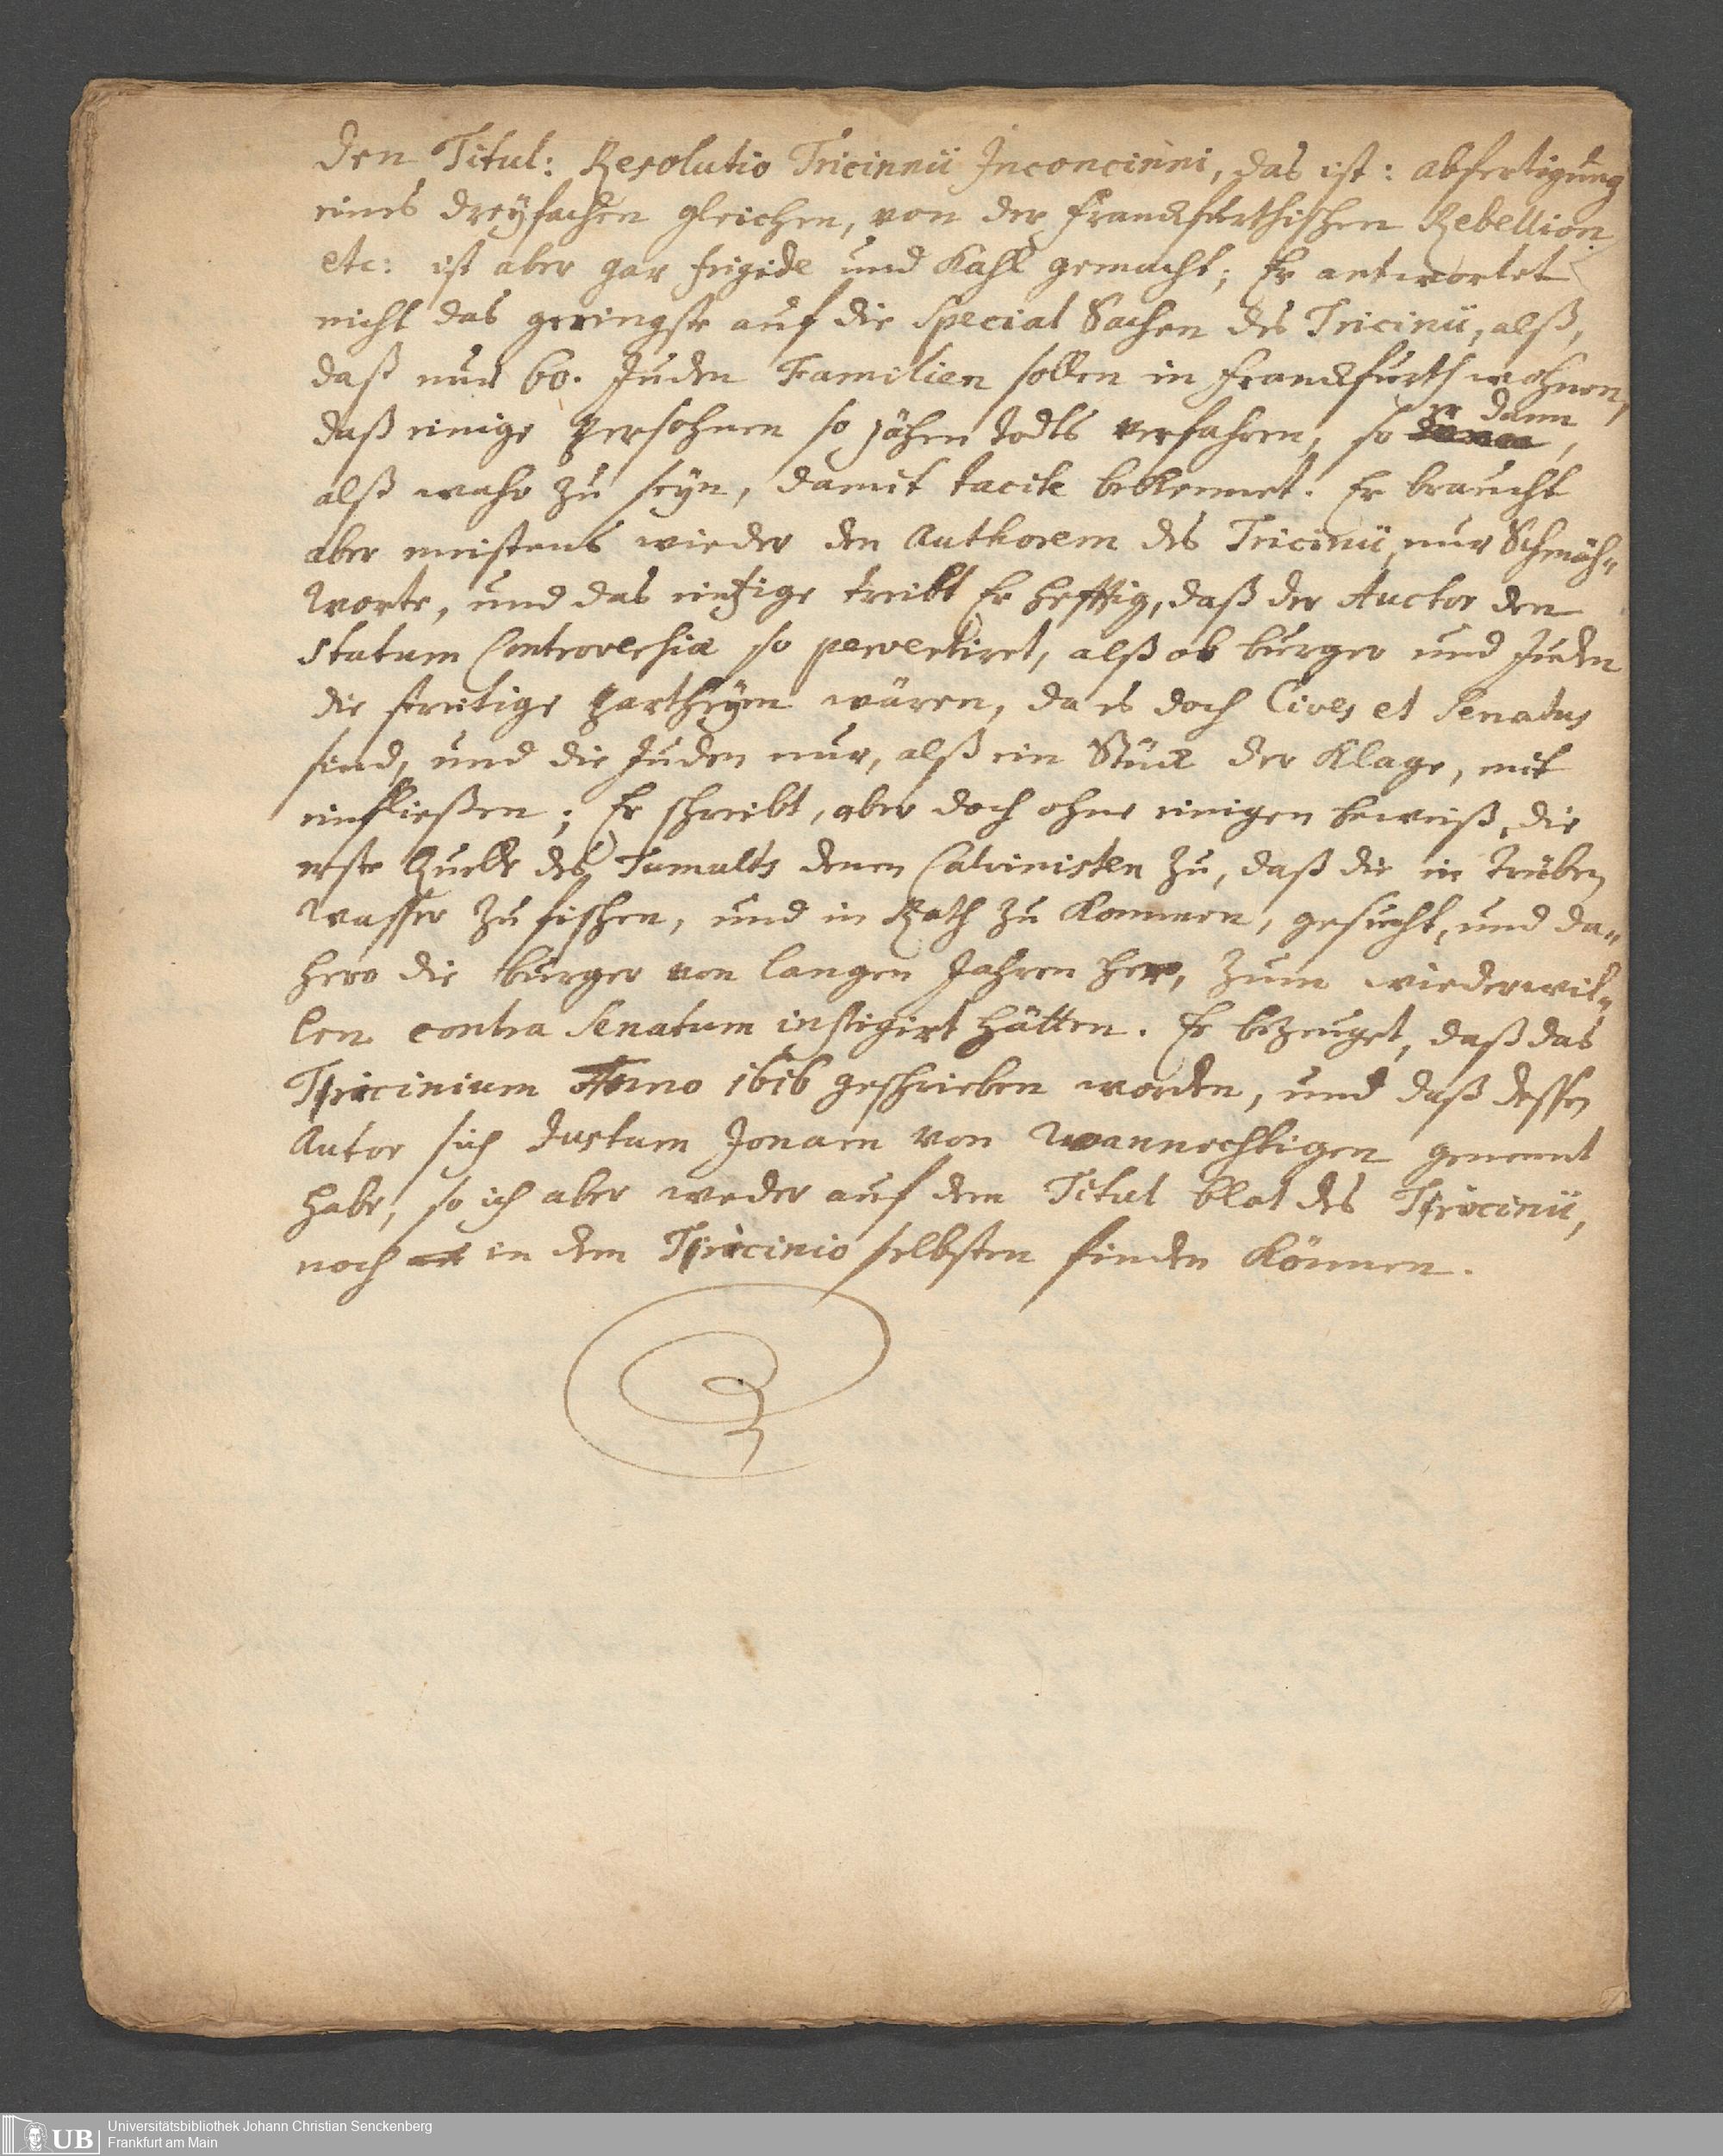 den Titul: Resolutio Tricinnii Inconcinni, das ist: abfertigung
eines dreyfachen gleichen, von der Franckfurthischen Rebellion
etc: ist aber gar frigide und Kahl gemacht; Er antwortet
nicht das geringste auf die Special Sachen des Tricinii, alß,
daß nur 60. Juden Familien sollen in Franckfurth wohnen,
daß einige Persohnen so jähen todts verfahren, so er dann,
alß wahr zu seyn, damit tacite bekennet. Er braucht
aber meistens wieder den Authorem des Tricinii, nur Schmäh-
worte, und das eintzige treibt Er hefftig, daß der Auctor den
statum Controversiæ so pervertiret, alß ob burger und Juden
die streitige Partheyen wären, da es doch Cives et Senatus
sind, und die Juden nur, alß ein Stück der Klage, mit
einfließen; Er schreibt, aber doch ohne einigen beweiß, die
erste Quelle des Tumults denen Calvinisten zu, daß die in trüben
wasser zu fischen, und in Rath zu Kommen, gesucht, und da-
hero die burger von langen Jahren her, zum wiederwil-
len contra Senatum instigirt hätten. Er bezeuget, daß das
Tricinium Anno 1616 geschrieben worden, und daß dessen
Autor sich Justum Jonam von Wannechtigen genennt
habe, so ich aber weder auf dem Titul blat des Tricinii,
noch in dem Tricinio selbsten finden Können.
UB
Universitätsbibliothek Johann Christian Senckenberg
Frankfurt am Main